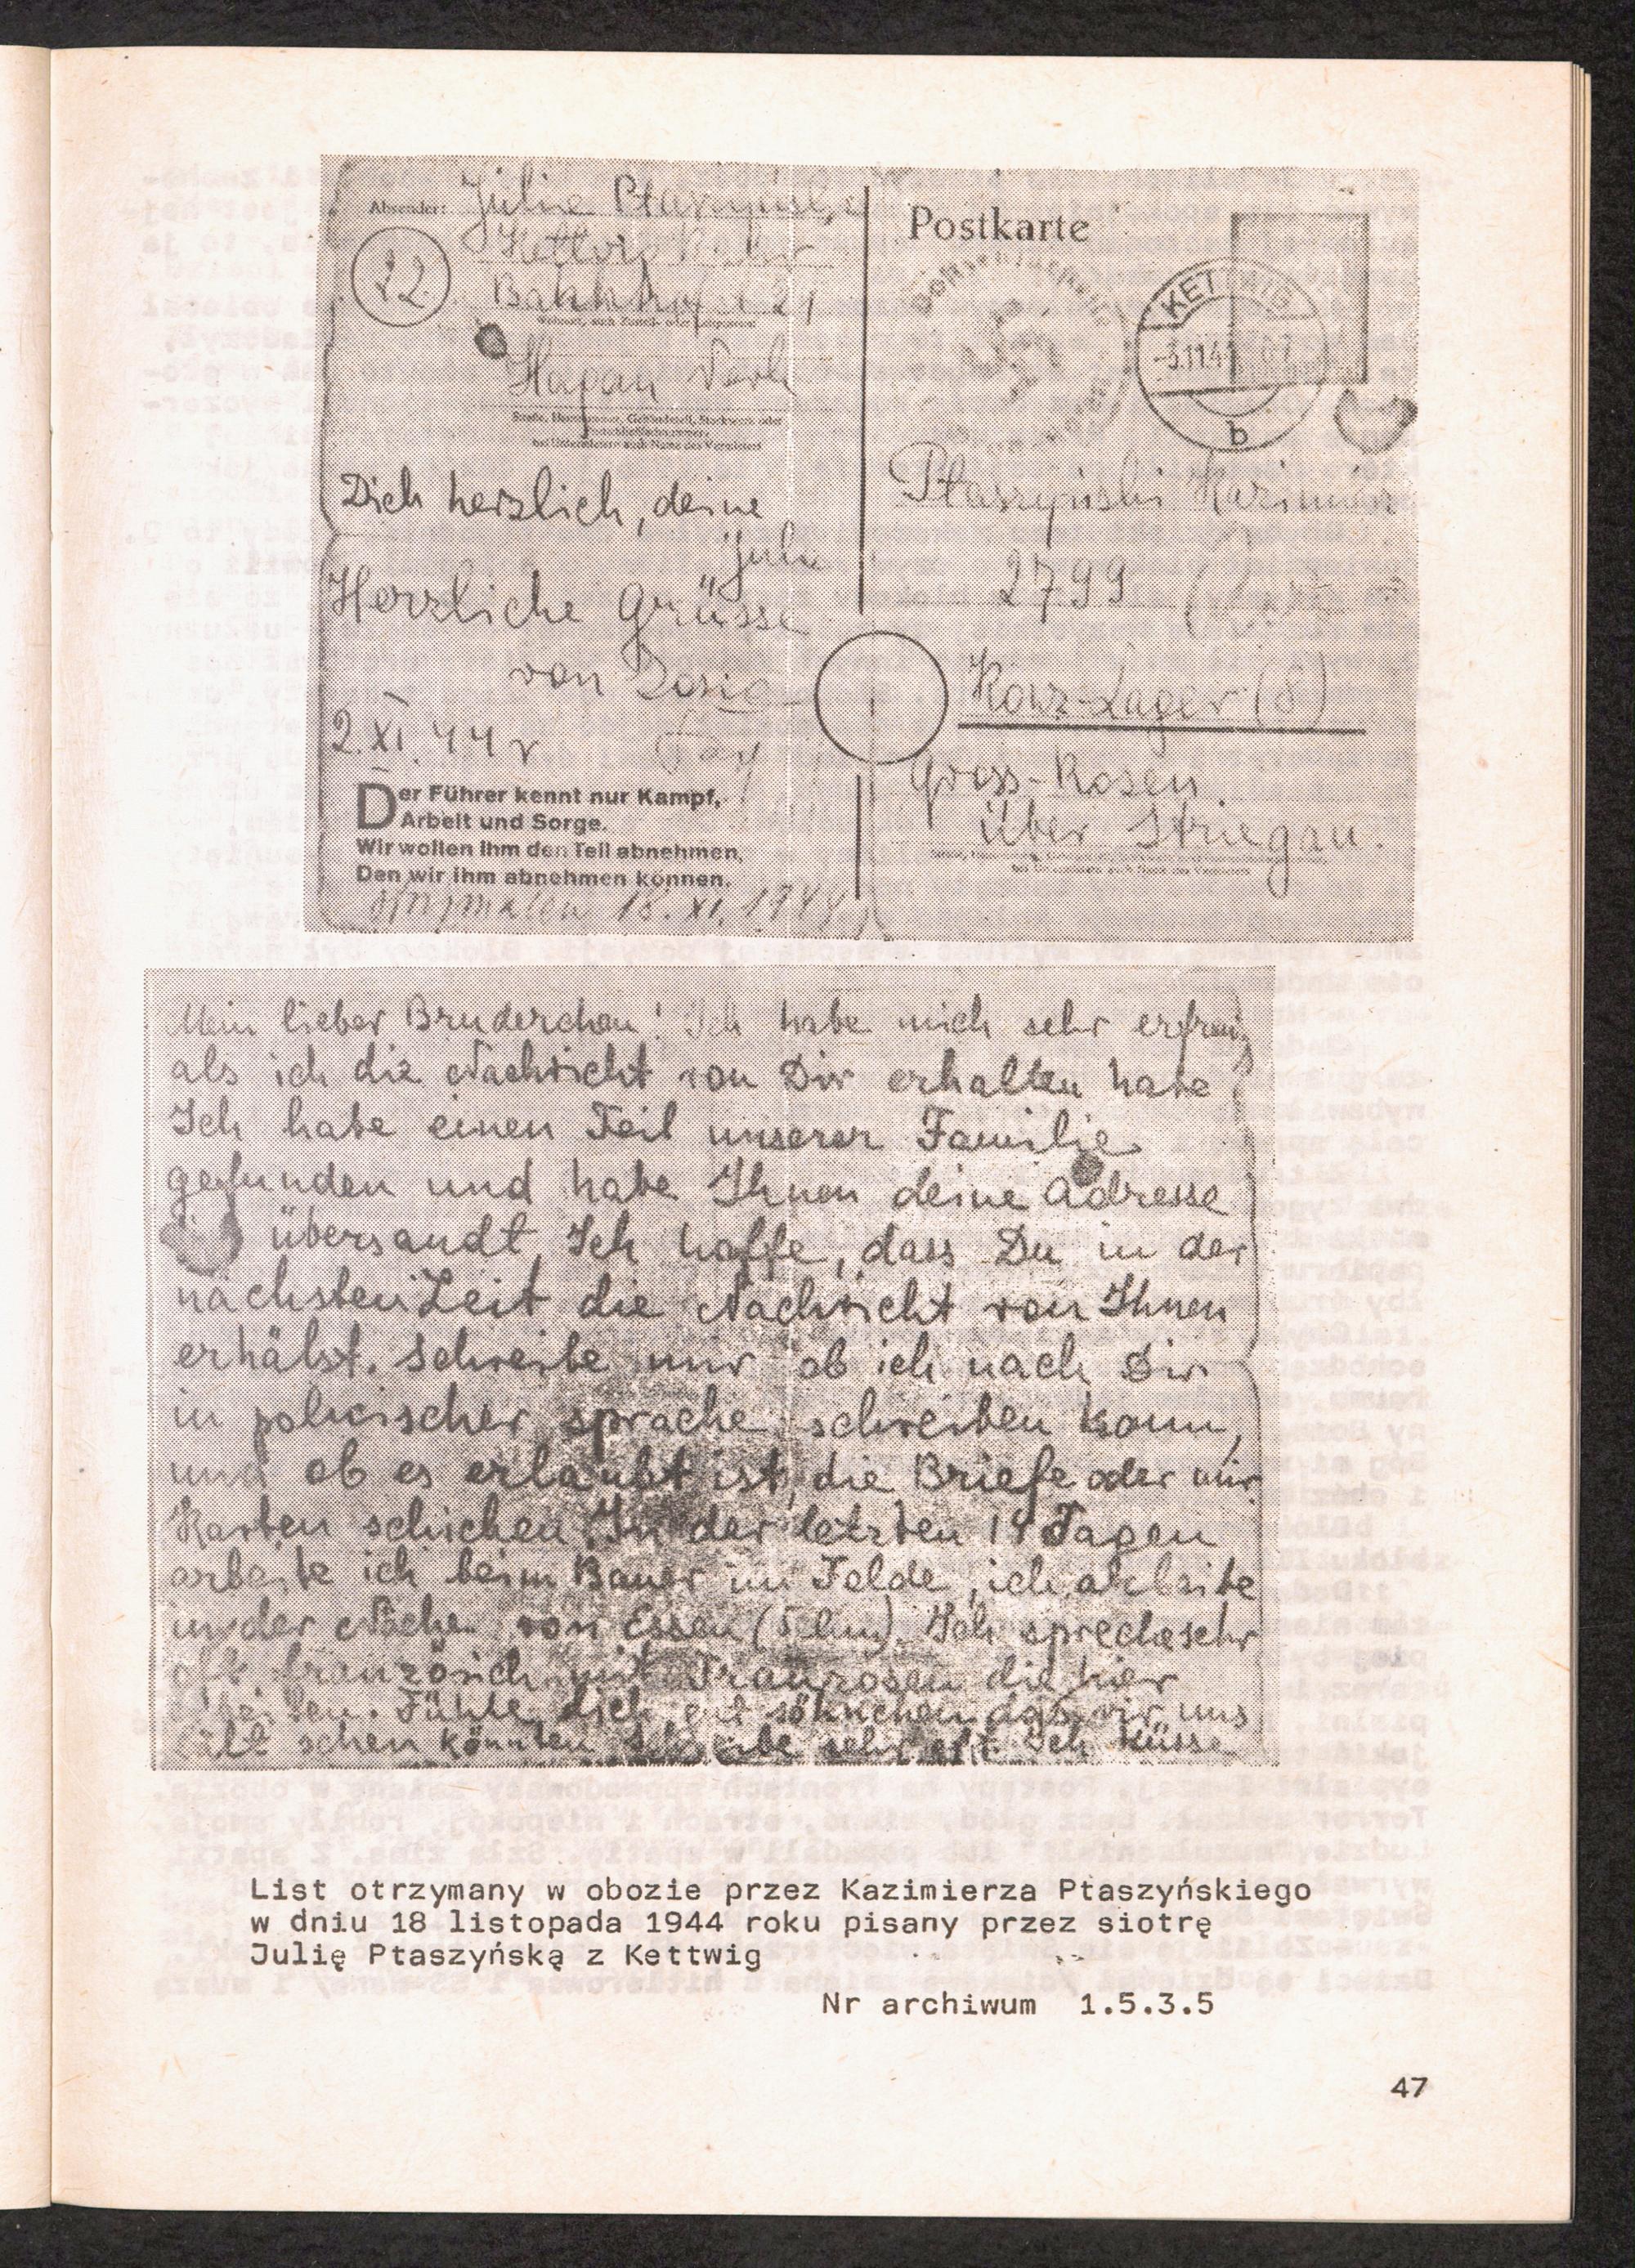 Absender: Julia
Kettwig Ruhr
22
Wohnort, auch Zustell- oder Leitpostamt
Straße, Hausnummer, Gebäudeteil, Stockwerk oder
Postschließfachnummer;
bei Untermietern auch Name des Vermieters
Dich herslich, deine
Jula
Herrliche Grüsse
von Zosia
2.XI.44r
Der Führer kennt nur Kampf,
Arbeit und Sorge.
Wir wollen ihm den Teil abnehmen,
Den wir ihm abnehmen können.
otrzymałem 18.XI.1944
Postkarte
KETTWIG
b
Ptaszyński Kazimierz
2799
Konz-Lager (8)
Gross-Rosen
über Striegau.
Mein lieber Bruderchen! Ich habe mich sehr erfreu
als ich die Nachricht von Dir erhalten habe
Ich habe einen Teil unserer Familie
gefunden und habe Ihnen deine Adresse
übersandt. Ich hoffe, dass Du in der
nächsten Zeit die Nachricht von Ihnen
erhälst. Schreibe mir ob ich nach Dir
in polnischer sprache schreiben kann,
und ob es erlaubt ist, die Briefe oder nur
Karten schicken. In der letzten Tagen
arbeite ich beim Bauer im Felde, ich arbeite
in der Nähe von Essen (5 km). Ich spreche sehr
oft französich mit Franzosen die hier
Fühle dich gut uns
könnten schreibe sehr oft. Ich küsse
List otrzymany w obozie przez Kazimierza Ptaszyńskiego
w dniu 18 listopada 1944 roku pisany przez siotrę
Julię Ptaszyńską z Kettwig
Nr archiwum 1.5.3.5
47